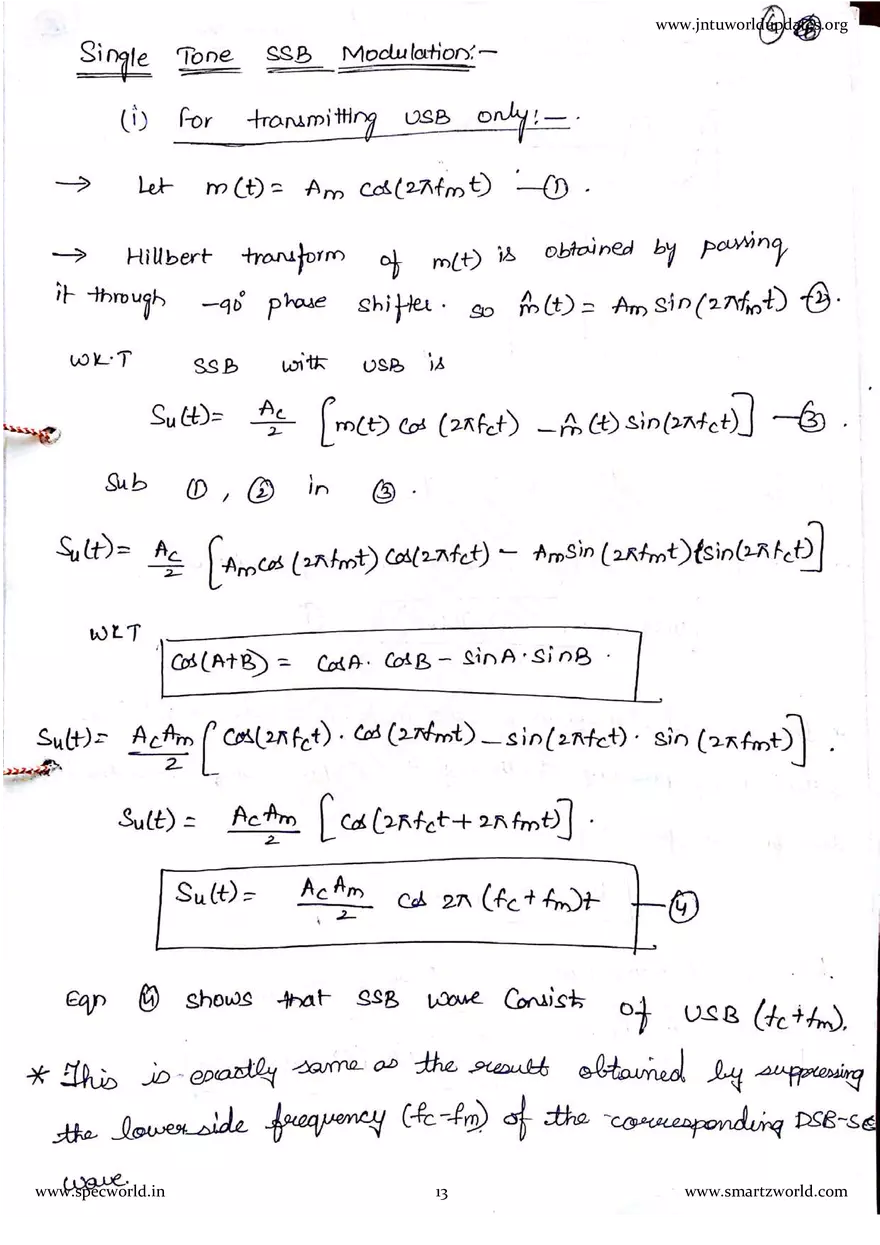 www.jntuworldupdates.org
Single Tone SSB Modulation:-
(i) for transmitting USB only:-.
→ Let m(t) = Am cos(2πfmt) —①.
→ Hillbert transform of m(t) is obtained by passing
it through -90° phase shifter. so m̂(t) = Am sin(2πfmt) -②.
WK.T SSB with USB is
Su(t) = Ac/2 [m(t) cos (2πfct) - m̂(t) sin(2πfct)] —③.
Sub ①, ② in ③.
Su(t) = Ac/2 [Am cos (2πfmt) cos(2πfct) - Am sin (2πfmt) sin(2πfct)]
WKT
cos(A+B) = cosA. cosB - sinA.sinB.
Su(t) = AcAm/2 [cos(2πfct). cos (2πfmt) - sin(2πfct). sin (2πfmt)].
Su(t) = AcAm/2 [cos (2πfct + 2πfmt)].
Su(t) = AcAm/2 cos 2π (fc + fm)t —④
Eqn ④ shows that SSB wave Consists of USB (fc+fm).
* This is exactly same as the result obtained by suppressing
the lower side frequency (fc-fm) of the corresponding DSB-SC
wave.
www.specworld.in 13 www.smartzworld.com